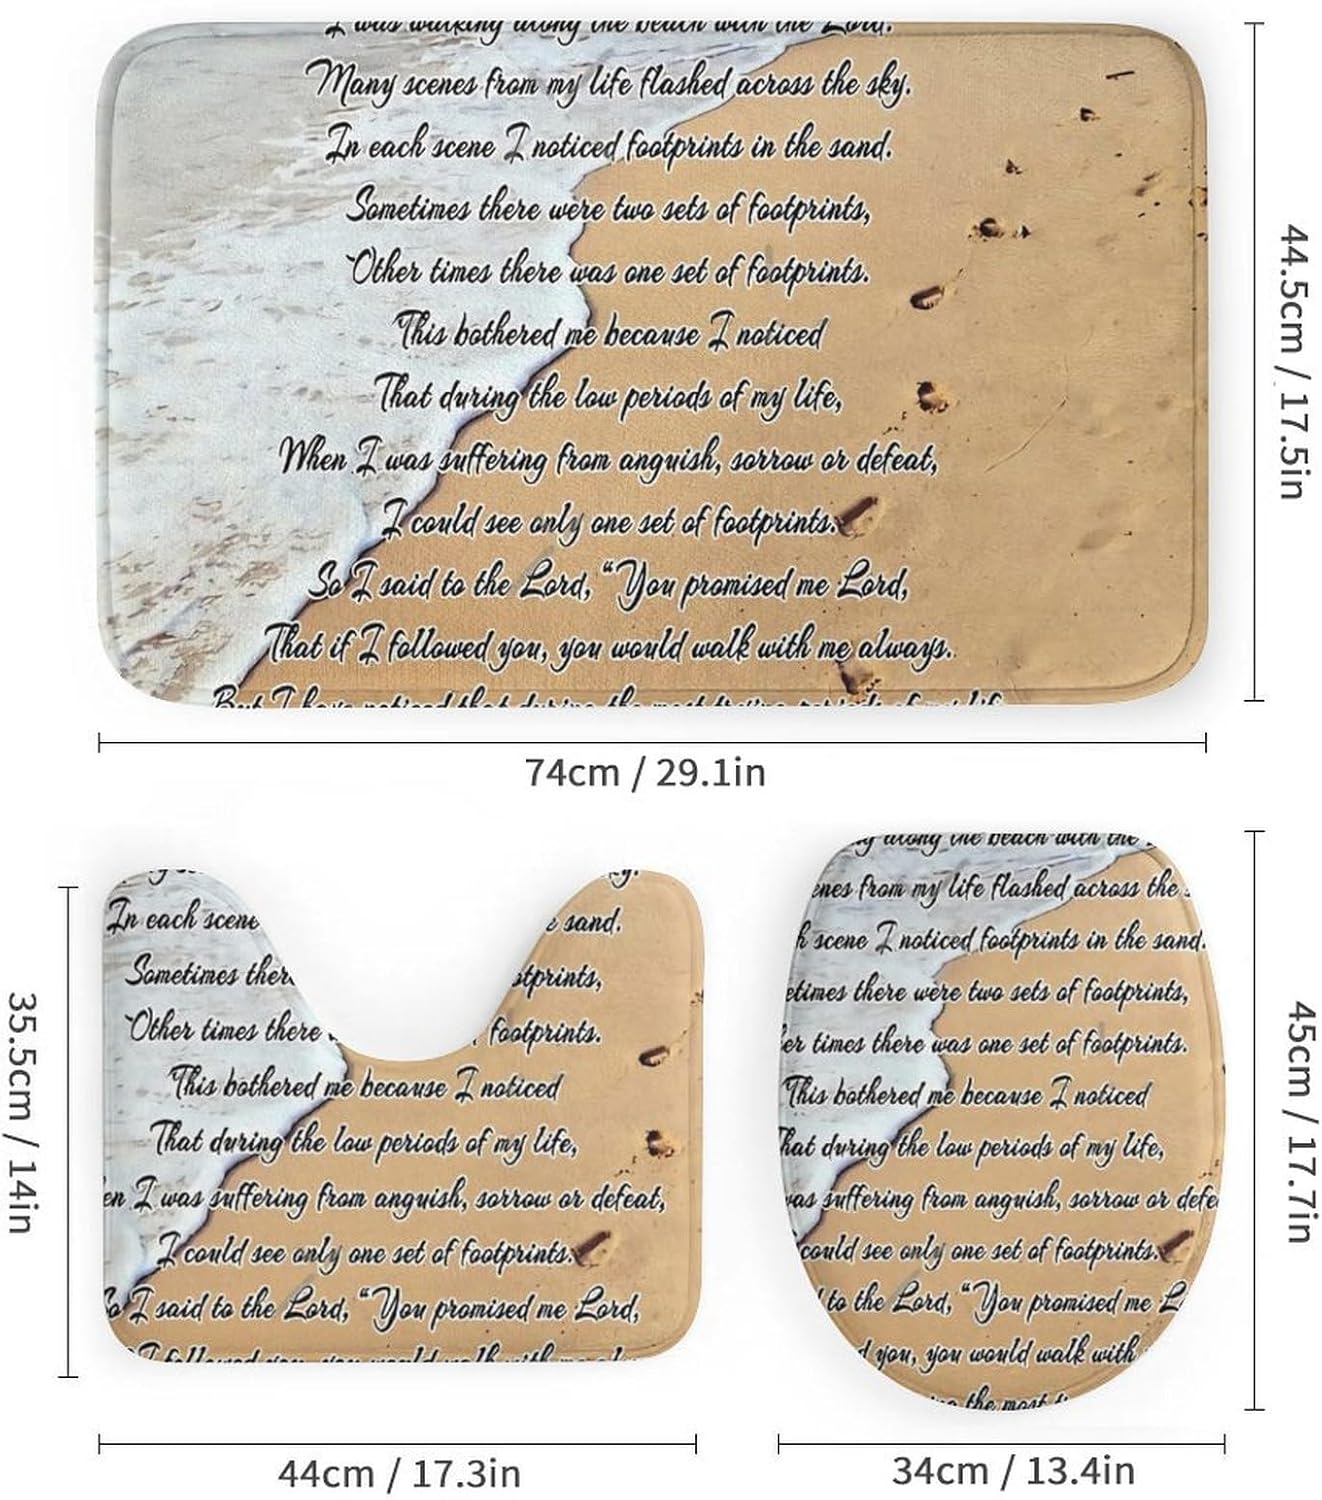 I was walking along the beach with the Lord.
Many scenes from my life flashed across the sky.
In each scene I noticed footprints in the sand.
Sometimes there were two sets of footprints,
Other times there was one set of footprints.
This bothered me because I noticed
That during the low periods of my life,
When I was suffering from anguish, sorrow or defeat,
I could see only one set of footprints.
So I said to the Lord, “You promised me Lord,
That if I followed you, you would walk with me always.
But I have noticed that during the most trying periods of my life
44.5cm / 17.5in
74cm / 29.1in
In each scene sand.
Sometimes there otprints,
Other times there footprints.
This bothered me because I noticed
That during the low periods of my life,
en I was suffering from anguish, sorrow or defeat,
I could see only one set of footprints.
So I said to the Lord, “You promised me Lord,
I followed you, you would walk with me al
35.5cm / 14in
44cm / 17.3in
along the beach with the
enes from my life flashed across the
h scene I noticed footprints in the sand.
etimes there were two sets of footprints,
er times there was one set of footprints.
This bothered me because I noticed
That during the low periods of my life,
was suffering from anguish, sorrow or defe
could see only one set of footprints.
to the Lord, “You promised me L
d you, you would walk with
the most
45cm / 17.7in
34cm / 13.4in